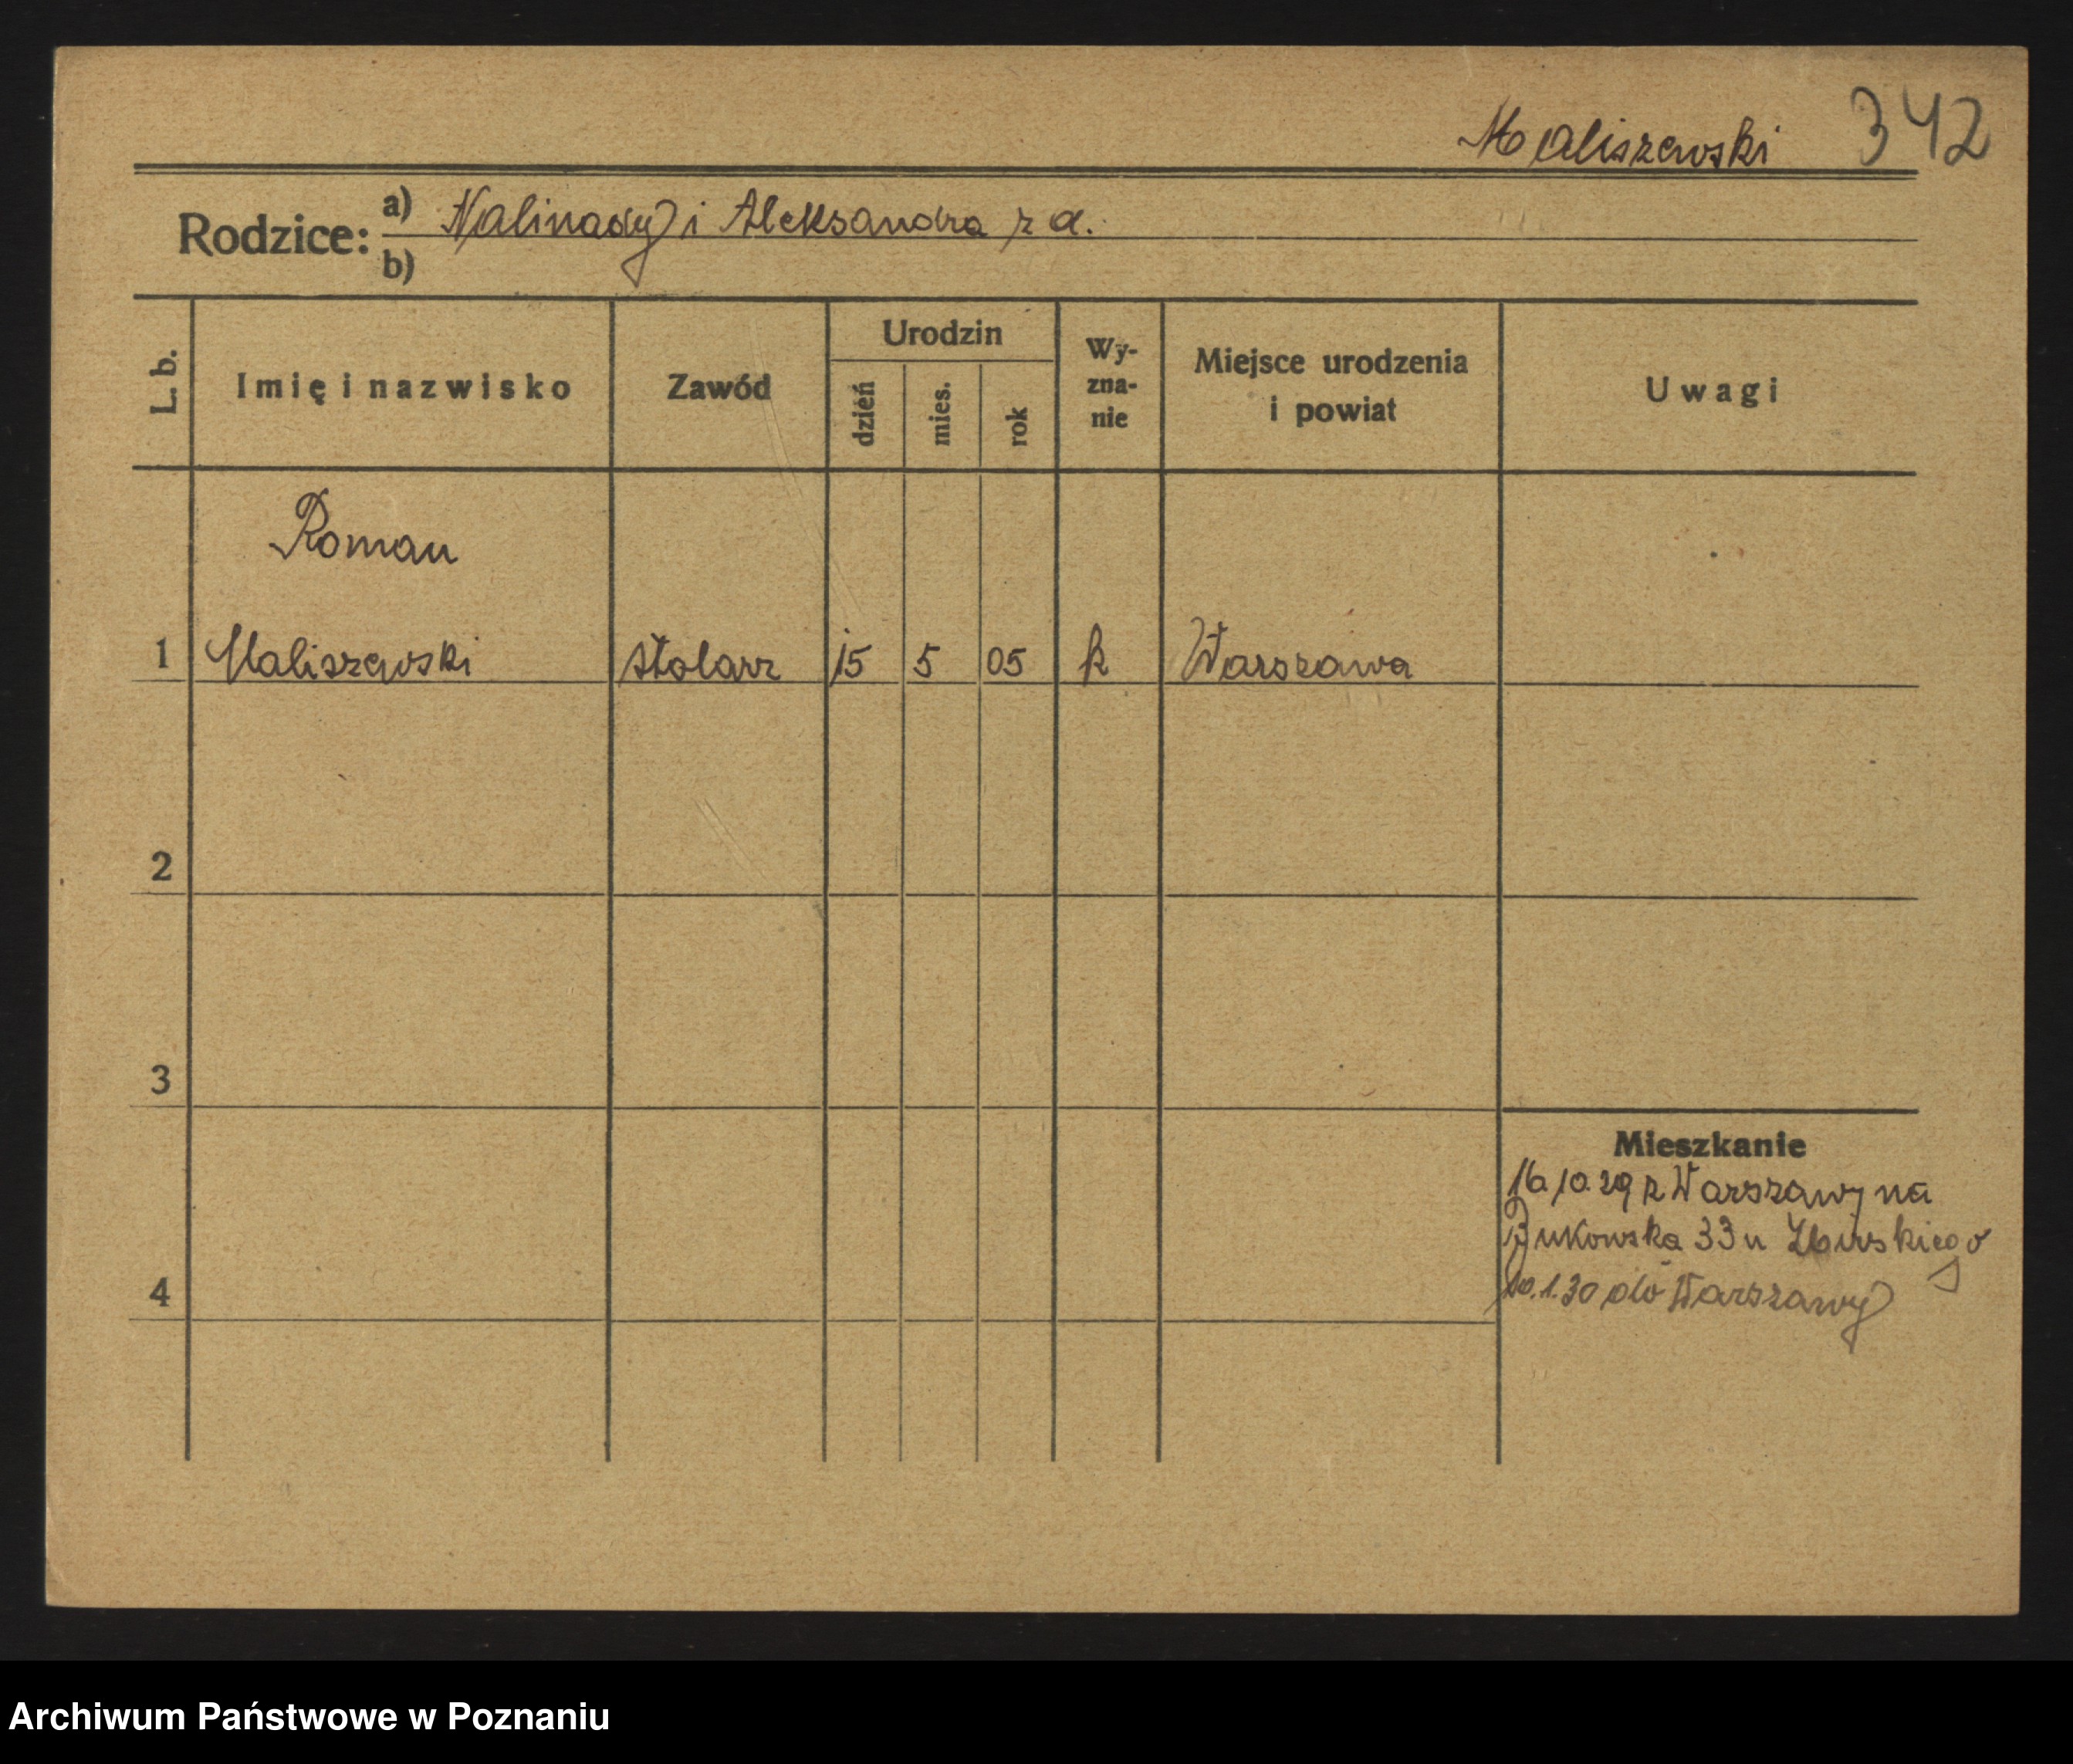 Maliszewski 342
Rodzice: a) Nalinady i Aleksandra z d.
b)
L. b. Imię i nazwisko Zawód Urodzin dzień mies. rok Wy-zna-nie Miejsce urodzenia i powiat Uwagi
Roman
1 Maliszewski stolarz 15 5 05 k Warszawa
2
3
Mieszkanie
16.10.29 z Warszawy na
Bukowska 33 u
4
10.1.30 do Warszawy
Archiwum Państwowe w Poznaniu